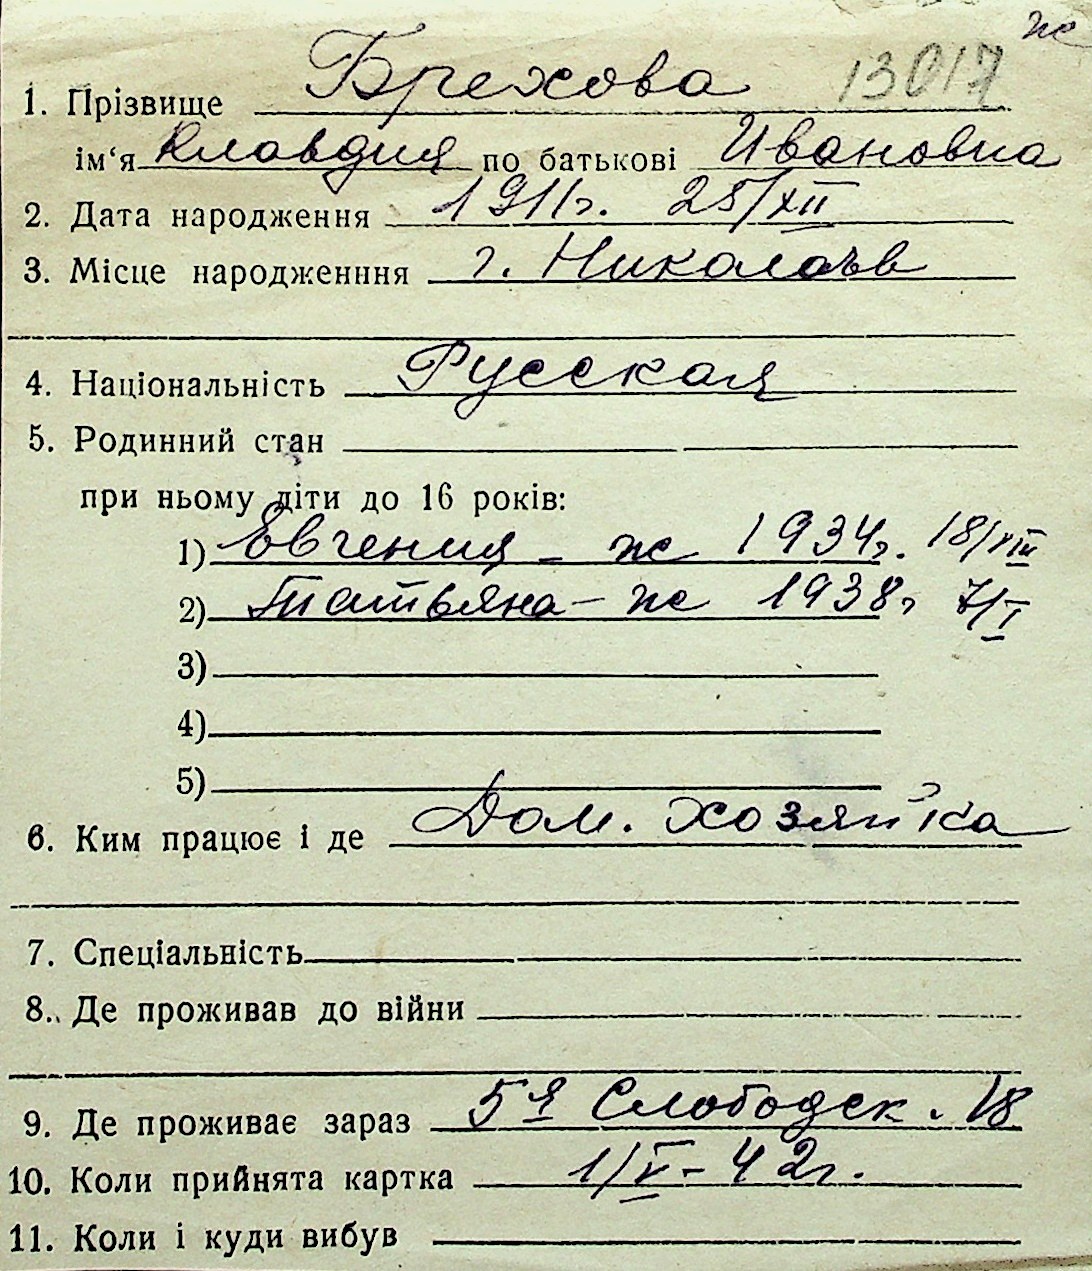 ж
13017
1. Прізвище Брехова
ім‘я Клавдия по батькові Ивановна
2. Дата народження 1911г. 25/XII
3. Місце народженння г. Николаев
4. Національність Русская
5. Родинний стан
при ньому діти до 16 років:
1) Евгения - ж 1934г. 18/VIII
2) Татьяна - ж 1938г 7/I
3)
4)
5)
6. Ким працює і де Дом. хозяйка
7. Спеціальність
8. Де проживав до війни
9. Де проживає зараз 5я Слободск. 18
10. Коли прийнята картка 1/V-42г.
11. Коли і куди вибув